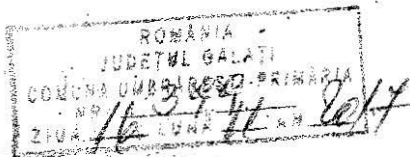 ROMÂNIA
JUDEŢUL GALAŢI
COMUNA UMBRĂREŞTI-PRIMĂRIA
NR.
ZIUA 16 LUNA 11 AN 2017